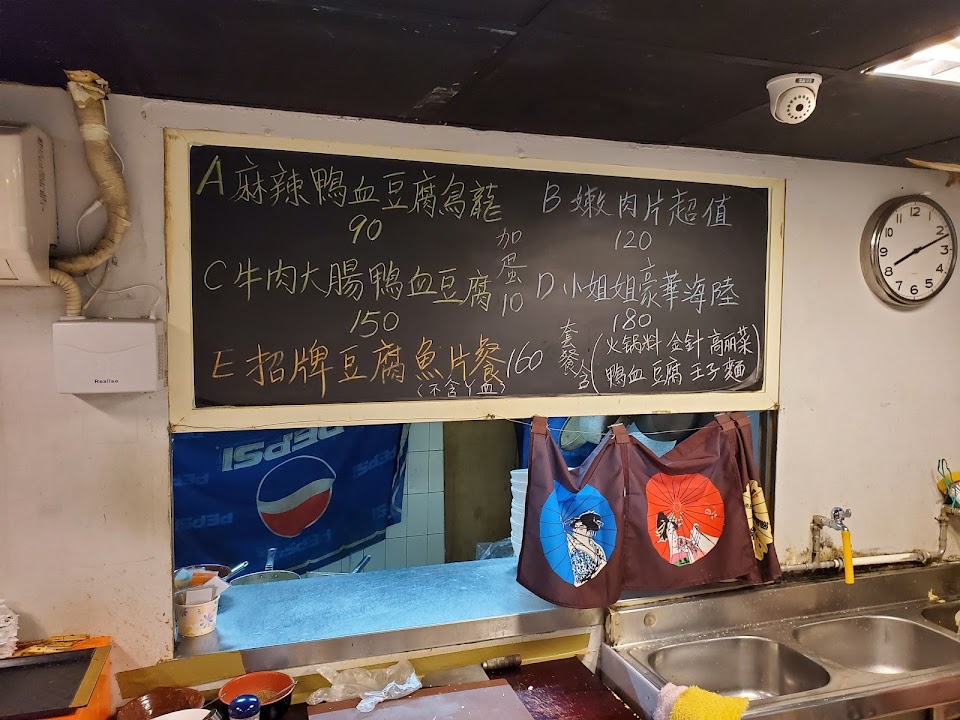 A 麻辣鴨血豆腐烏龍
90
B 嫩肉片超值
120
加蛋10
C 牛肉大腸鴨血豆腐
150
D 小姐姐豪華海陸
180
E 招牌豆腐魚片餐 160
(不含丫血)
套餐含
(火锅料 金針 高丽菜
鴨血 豆腐 王子麵)
Realise
PEPSI
PEPSI
12
1
2
3
4
5
6
7
8
9
10
11